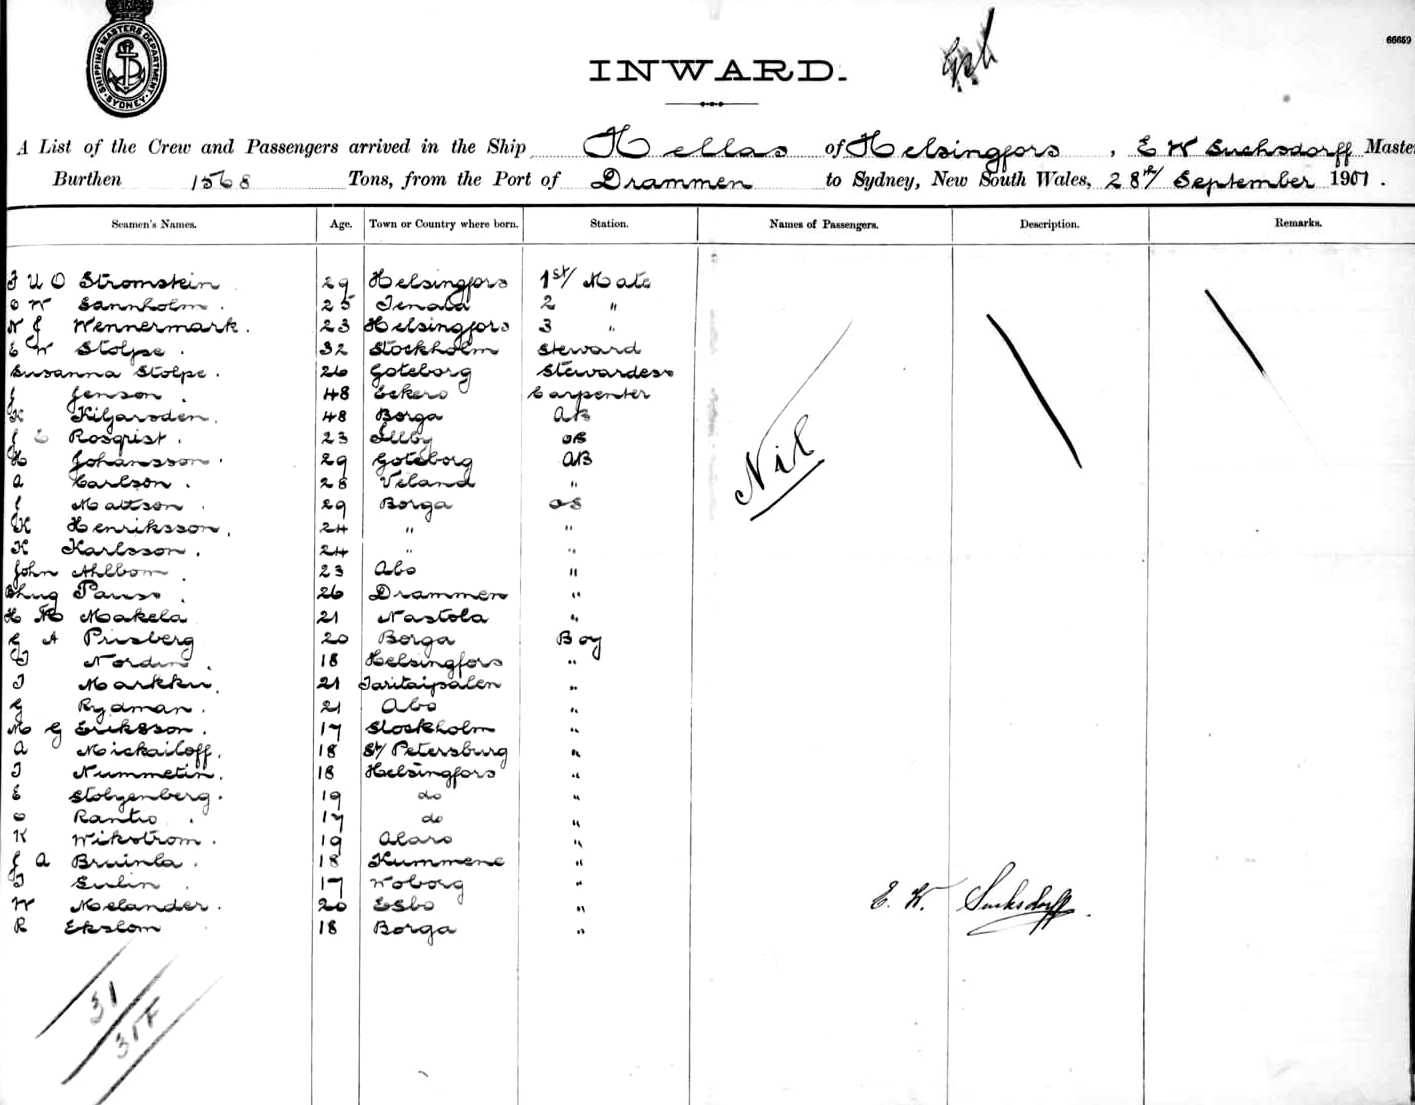 SHIPPING MASTERS DEPARTMENT
SYDNEY
66659
INWARD.
A List of the Crew and Passengers arrived in the Ship Hellas of Helsingfors, E W Sucksdorff Master
Burthen 1568 Tons, from the Port of Drammen to Sydney, New South Wales, 28th/ September 1901.
Seamen's Names. Age. Town or Country where born. Station. Names of Passengers. Description. Remarks.
Stromstein 29 Helsingfors 1st/ Mate
Sannholm. 25 Tenala 2 "
N J Wennermark. 23 Helsingfors 3 "
E W Stolpe. 32 Stockholm Steward
Susanna Stolpe. 26 Goteborg Stewardess
J Jenson. 48 Eckero Carpenter
K 48 Borga AB
Rosqvist. 23 OS
H Johansson. 29 Goteborg AB
A Carlson. 28 Veland "
J Mattson. 29 Borga OS
K Henriksson. 24 " "
K Karlsson. 24 " "
John Ahlbom. 23 Abo "
26 Drammen "
H Makela 21 Nastola "
A 20 Borga Boy
Nordin. 18 Helsingfors "
Markku. 21 "
G Rydman. 21 Abo "
M G Eriksson. 17 Stockholm "
A Mickailoff. 18 St/ Petersburg "
18 Helsingfors "
E 19 do "
17 do "
K Wikstrom. 19 "
J A 18 Kummene "
17 "
W Melander. 20 Esbo "
R 18 Borga "
Nil
E. W. Sucksdorff.
31